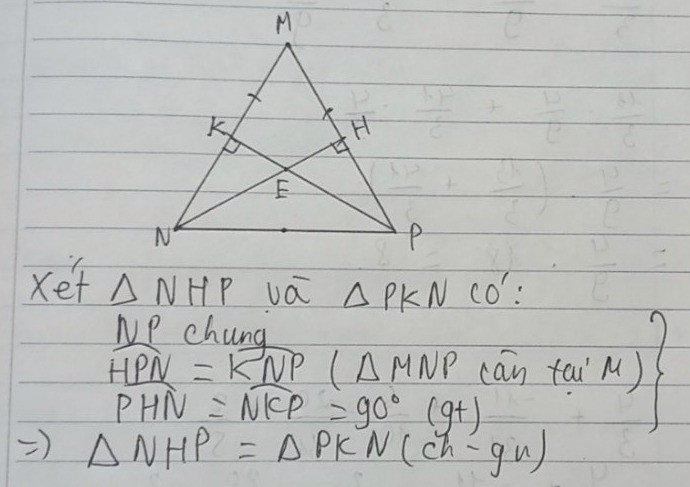 M
K H
E
N P
Xét Δ NHP và Δ PKN có:
NP chung
HPN = KNP (Δ MNP cân tại M)
PHN = NKP = 90° (gt)
=) Δ NHP = Δ PKN (ch - gn)